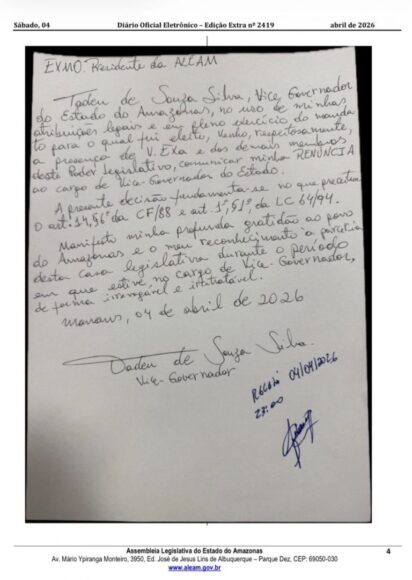 Sábado, 04 Diário Oficial Eletrônico – Edição Extra nº 2419 abril de 2026
EXMO. Presidente da ALEAM
Tadeu de Souza Silva, Vice-Governador
do Estado do Amazonas, no uso de minhas
atribuições legais e em pleno exercício do manda
to para o qual fui eleito, venho, respeitosamente,
a presença de V. EXa e dos demais membros
deste Poder legislativo, comunicar minha RENÚNCIA
ao cargo de Vice-Governador do Estado.
A presente decisão fundamenta-se no que preceitua
O art. 14, §6º da CF/88 e art. 1º, §1º, da LC 64/94.
Manifesto minha profunda gratidão ao povo
do Amazonas e o meu reconhecimento à parceria
desta casa legislativa durante o período
em que estive no cargo de Vice-Governador,
de forma irrevogável e irretratável.
Manaus, 04 de abril de 2026
Tadeu de Souza Silva.
Vice-Governador
Recebi 04/04/2026
Assembleia Legislativa do Estado do Amazonas
Av. Mário Ypiranga Monteiro, 3950, Ed. José de Jesus Lins de Albuquerque – Parque Dez, CEP: 69050-030
www.aleam.gov.br
4